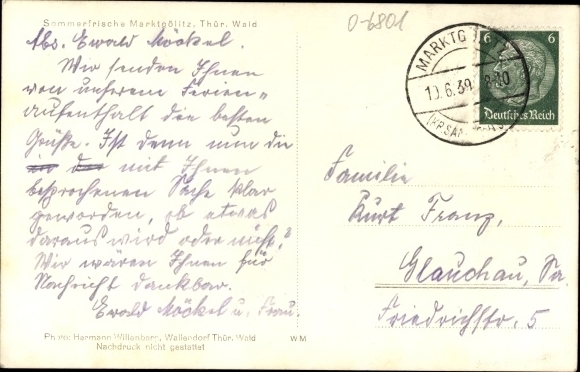 Sommerfrische Marktgölitz, Thür. Wald
Abs. Ewald Möckel.
Wir senden Ihnen
von unserem Ferien-
aufenthalt die besten
Grüße. Ist denn nun die
mit Ihnen
besprochenen Sache klar
geworden, ob etwas
daraus wird oder nicht?
Wir wären Ihnen für
Nachricht dankbar.
Ewald Möckel u. Frau.
Photo: Hermann Willenberg, Wallendorf Thür. Wald
Nachdruck nicht gestattet
WM
0-6801
MARKTG
10.6.39
6 6
Deutsches Reich
Familie
Kurt Franz,
Glauchau, Sa.
Friedrichstr. 5